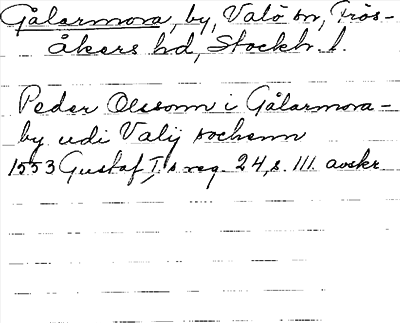 Gålarmora, by, Valö sn, Frös-
åkers hd, Stockh. l.
Peder Olssonn i Gålarmora-
by udi Valij sochenn
1553 Gustaf I,s reg. 24, s. 111. avskr.